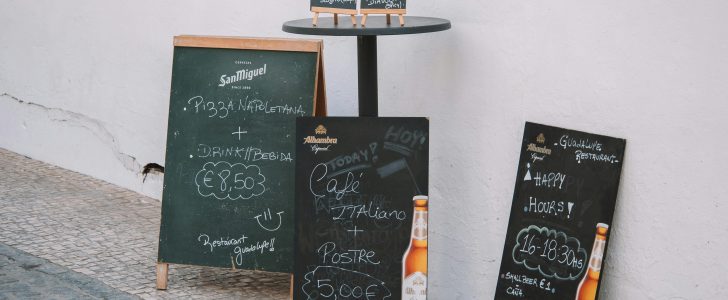 CERVEZAS
SanMiguel
SINCE 1890
.PIZZA NAPOLETANA
+
.DRINK//BEBIDA
€8,50
Restaurant
guadalupe!!
Alhambra
Especial
HOY!
TODAY!
Café
ITALIANO
+
POSTRE
5,00€
Alhambra
Especial
GUADALUPE
RESTAURANT
HAPPY
HOURS!
16-18:30HS
SMALL BEER €1
CAÑA